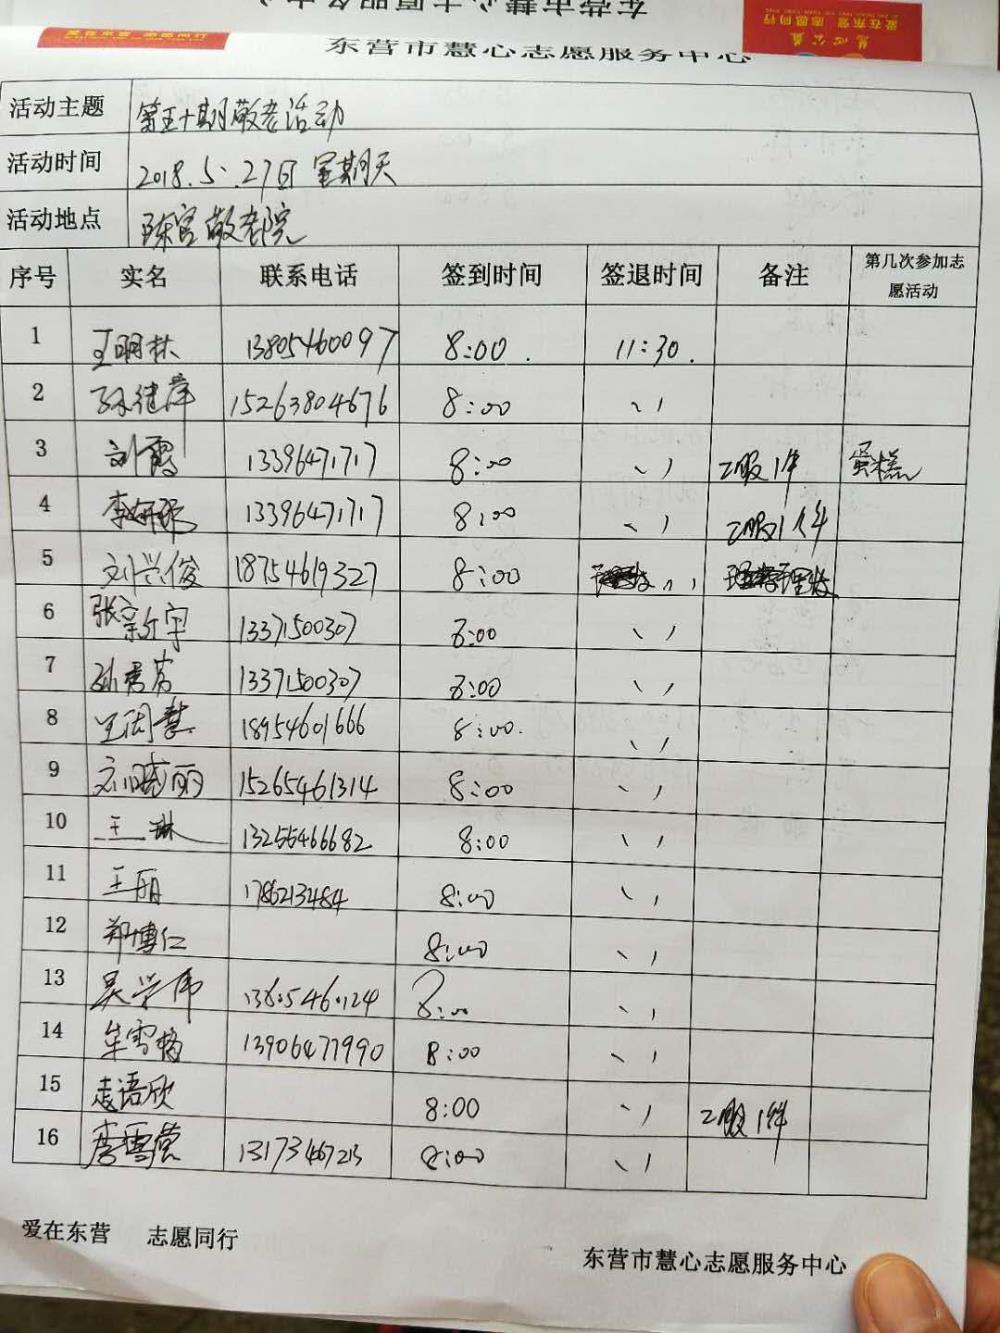 东营市慧心志愿服务中心
爱在东营 志愿同行
慧心公益
爱在东营 志愿同行
东营市慧心志愿服务中心
活动主题 第五十期敬老活动
活动时间 2018.5.27日 星期天
活动地点 陈官敬老院
序号 实名 联系电话 签到时间 签退时间 备注 第几次参加志愿活动
1 王明林 13805460097 8:00 11:30
2 孙继萍 15263804676 8:00 〃
3 刘霞 13396471717 8:00 〃 衣服1件 蛋糕
4 李妍 13396471717 8:00 〃 衣服1件
5 刘兴俊 18754619327 8:00 〃
6 张宗宇 13371500307 8:00 〃
7 孙秀芳 13371500307 8:00 〃
8 王闰慧 18954601666 8:00 〃
9 刘晓丽 15265461314 8:00 〃
10 王琳 13255466682 8:00 〃
11 王丽 1786213484 8:00 〃
12 郑博仁 8:00 〃
13 吴学伟 13605460124 8:00 〃
14 牟雪梅 13906477990 8:00 〃
15 袁语欣 8:00 〃 衣服1件
16 李雪莹 13173467213 8:00 〃
爱在东营 志愿同行
东营市慧心志愿服务中心